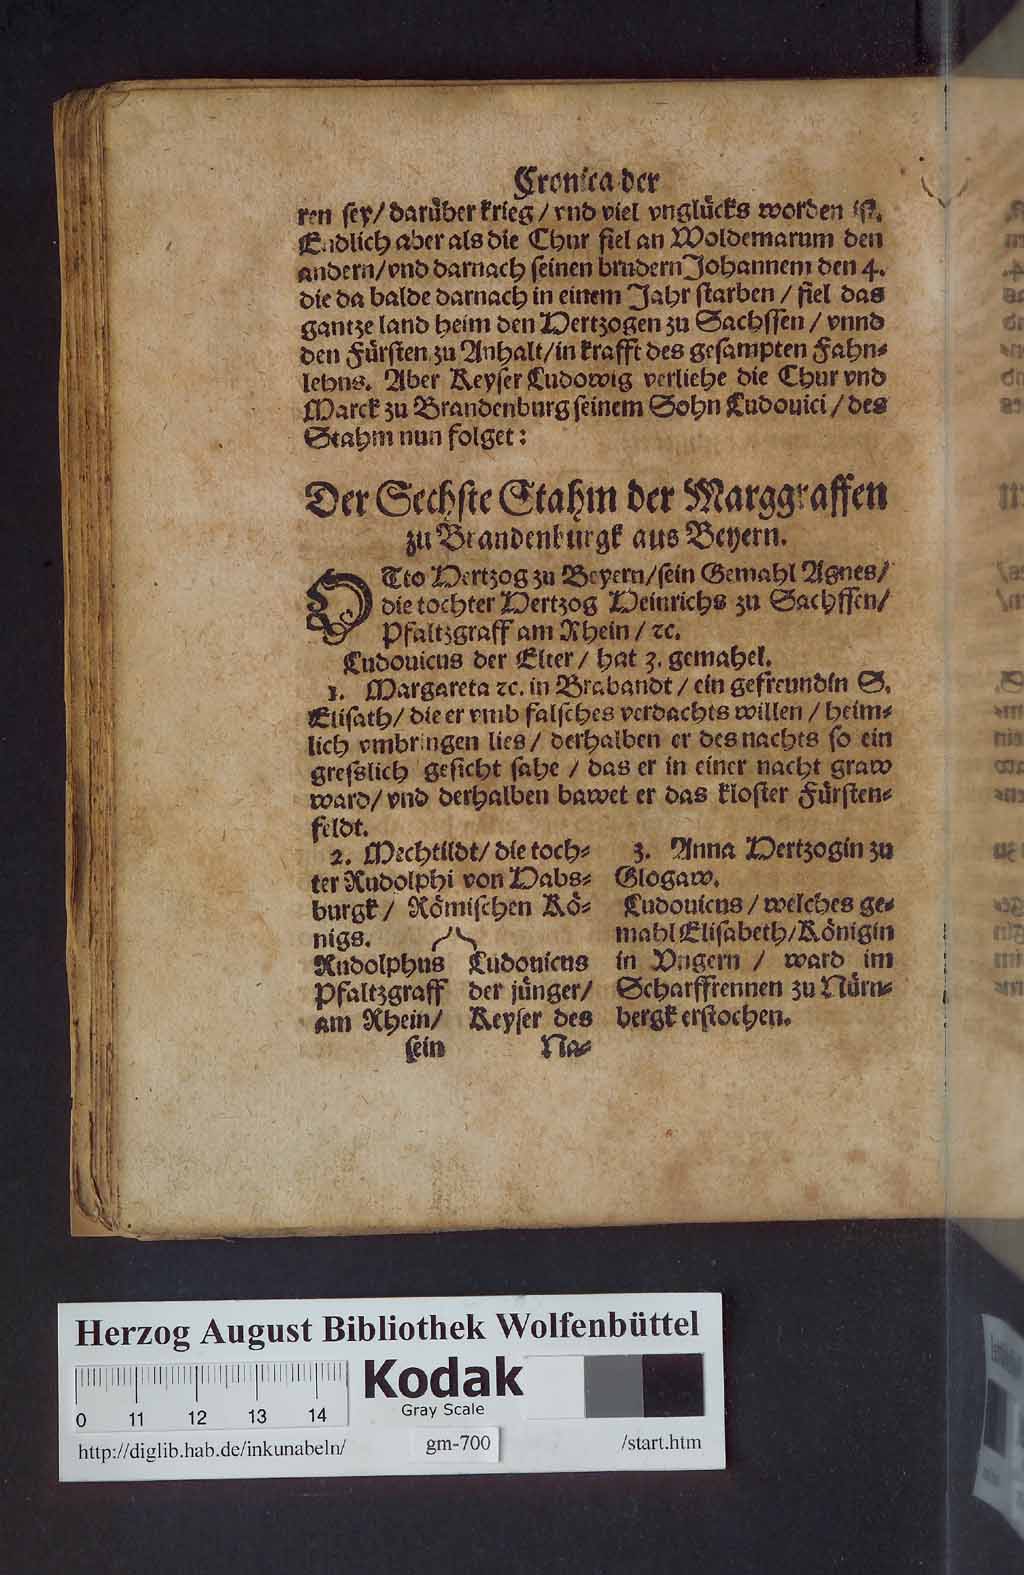 Cronica der
ren sey/ darüber krieg/ vnd viel vnglücks worden ist.
Endlich aber als die Chur fiel an Woldemarum den
andern/ vnd darnach seinen brudern Johannem den 4.
die da balde darnach in einem Jahr storben/ fiel das
gantze land heim den Hertzogen zu Sachssen/ vnnd
den Fürsten zu Anhalt/ in krafft des gesampten Fahn⸗
lehns. Aber Keyser Ludowig verliehe die Chur vnd
Marck zu Brandenburg seinem Sohn Ludouici/ des
Stahm nun folget:
Der Sechste Stahm der Marggraffen
zu Brandenburgk aus Beyern.
OTto Hertzog zu Beyern/ sein Gemahl Agnes/
die tochter Hertzog Heinrichs zu Sachssen/
Pfaltzgraff am Rhein/ ꝛc.
Ludouicus der Elter/ hat 3. gemahel.
1. Margareta ꝛc. in Brabandt/ ein gefreundin S.
Elisath/ die er vmb falsches verdachts willen/ heim⸗
lich vmbringen lies/ derhalben er des nachts so ein
gresslich gesicht sahe/ das er in einer nacht graw
ward/ vnd derhalben bawet er das kloster Fürsten⸗
feldt.
2. Mechtildt/ die toch⸗
ter Rudolphi von Habs⸗
burgk/ Römischen Kö⸗
nigs.
Rudolphus
Pfaltzgraff
am Rhein/
sein
Ludouicus
der jünger/
Keyser des
Na⸗
3. Anna Hertzogin zu
Glogaw.
Ludouicus/ welches ge⸗
mahl Elisabeth/ Königin
in Vngern/ ward im
Scharffrennen zu Nürn⸗
bergk erstochen.
Herzog August Bibliothek Wolfenbüttel
0 11 12 13 14
Kodak
Gray Scale
http://diglib.hab.de/inkunabeln/ gm-700 /start.htm